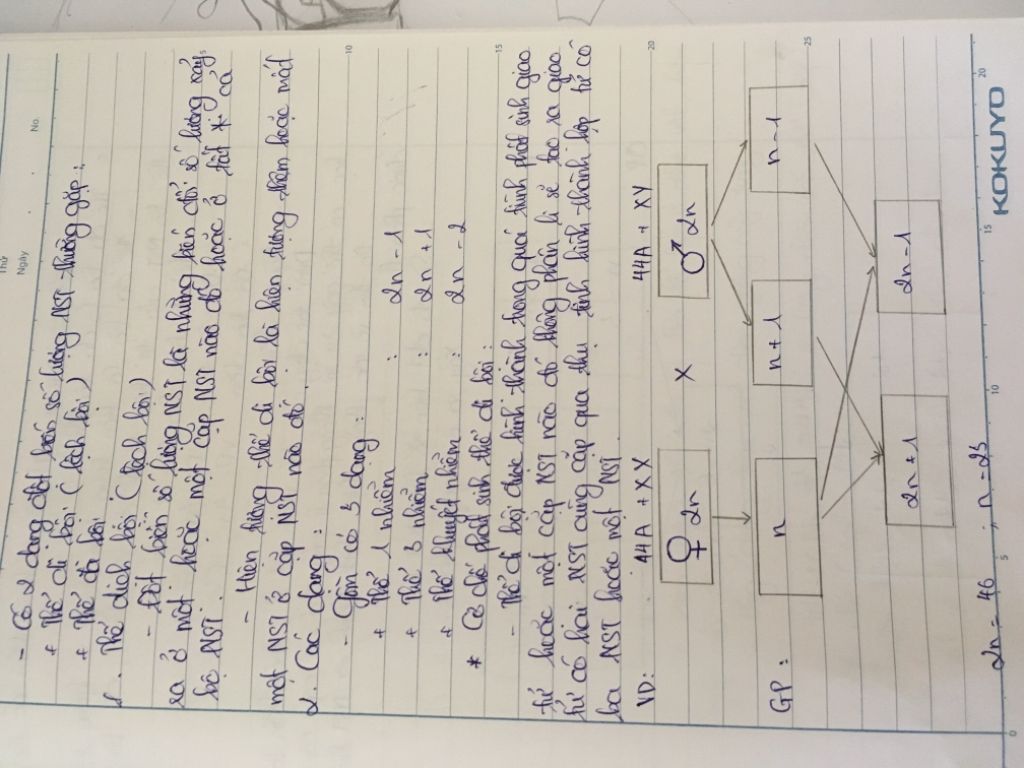 Thứ
Ngày
No.
- Có 2 dạng đột biến số lượng NST thường gặp :
+ Thể dị bội ( lệch bội )
+ Thể đa bội
1. Thể dị bội ( lệch bội )
- Đột biến số lượng NST là những biến đổi số lượng xảy
ra ở một hoặc một cặp NST nào đó hoặc ở tất cả
bộ NST.
- Hiện tượng thể dị bội là hiện tượng thêm hoặc mất
một NST ở cặp NST nào đó.
2. Các dạng :
- Gồm có 3 dạng :
+ Thể 1 nhiễm : 2n - 1
+ Thể 3 nhiễm : 2n + 1
+ Thể khuyết nhiễm : 2n - 2
* Cơ chế phát sinh thể dị bội :
- Thể dị bội được hình thành trong quá trình phát sinh giao
tử hoặc một cặp NST nào đó không phân li sẽ tạo ra giao
tử có hai NST cùng cặp qua thụ tinh hình thành hợp tử có
ba NST hoặc một NST
VD: 44A + XX 44A + XY
♀ 2n X ♂ 2n
GP : n n + 1 n - 1
2n + 1 2n - 1
2n = 46 ; n = 23
5 10 15 20 25
0 5 10 15 20
KOKUYO